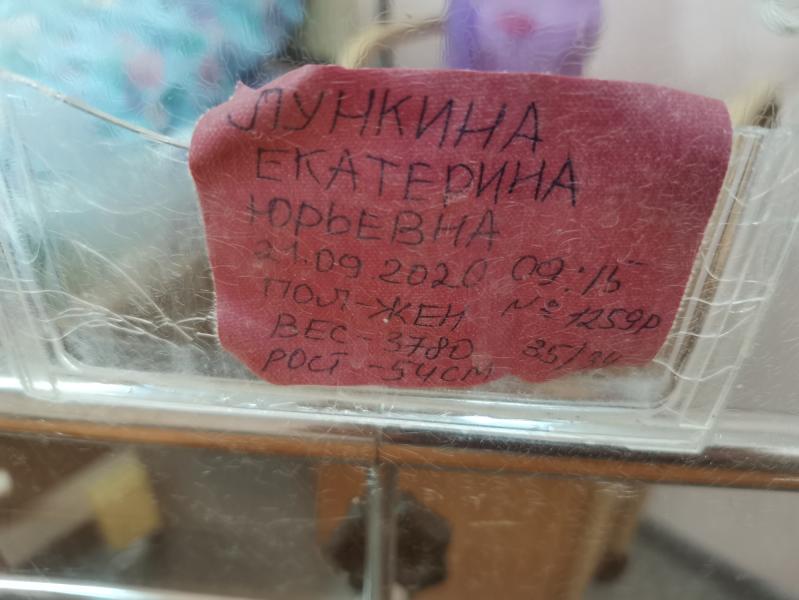 ЛУНКИНА
ЕКАТЕРИНА
ЮРЬЕВНА
21.09 2020 09:15
ПОЛ-ЖЕН № 1259р
ВЕС - 3780
РОСТ - 54СМ